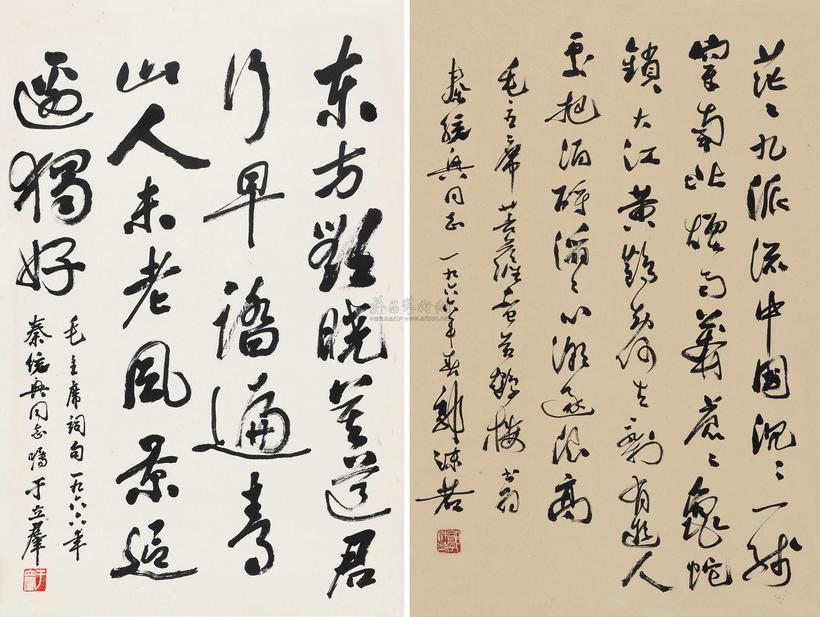 东方欲晓莫道君
行早踏遍青
山人未老风景這
邊獨好
毛主席词句 一九六六年
秦统兴同志嘱 于立群
茫〻九派流中國沉〻一线
穿南北烟雨莽苍〻龟蛇
鎖大江黄鹤知何去剩有遊人
处把酒酹滔〻心潮逐浪高
毛主席菩萨蛮黄鹤楼 书为
秦统兴同志 一九六六年春 郭沫若